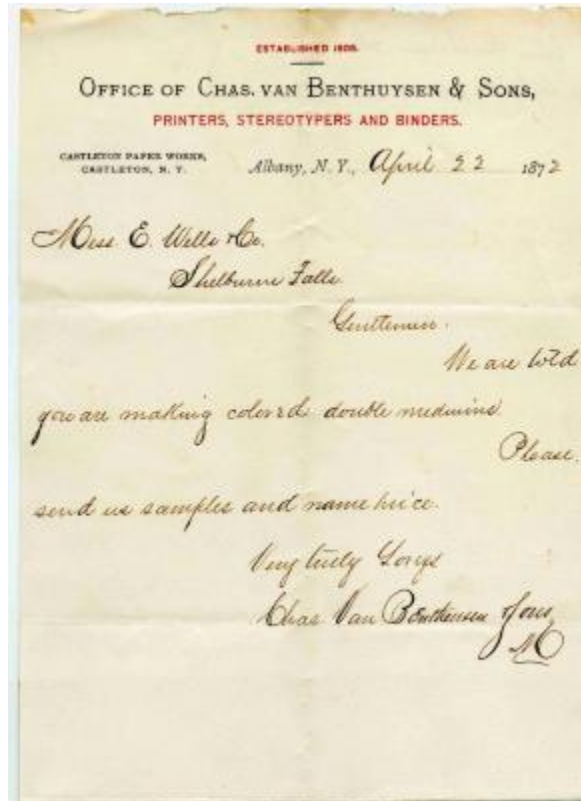 ESTABLISHED 1808.
OFFICE OF CHAS. VAN BENTHUYSEN & SONS,
PRINTERS, STEREOTYPERS AND BINDERS.
CASTLETON PAPER WORKS,
CASTLETON, N. Y.
Albany, N. Y., April 22 1872
Mess E. Wells & Co.
Shelburne Falls.
Gentlemen.
We are told
you are making colored double mediums
Please
send us samples and name price.
Very truly Yours
Chas Van Benthuysen & Sons